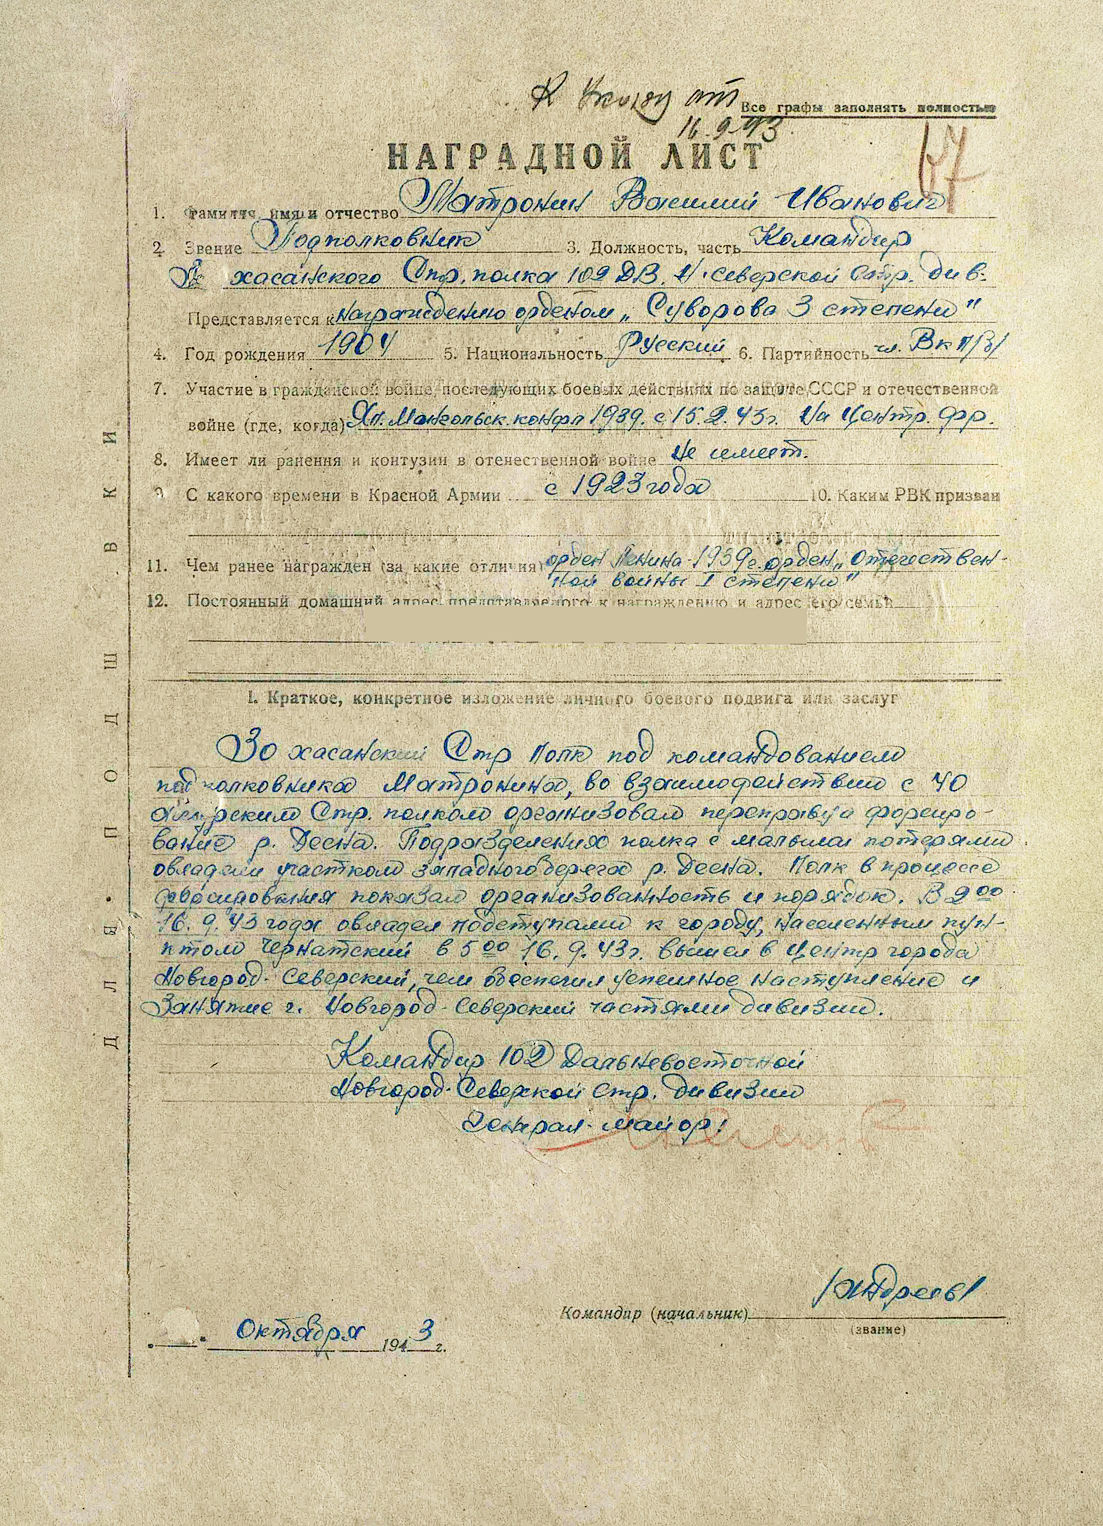 К Указу от
16.9.43
Все графы заполнять полностью
67
НАГРАДНОЙ ЛИСТ
1. Фамилия, имя и отчество Матронин Василий Иванович
2. Звение Подполковник 3. Должность, часть Командир
хасанского Стр. полка 102 ДВ. Н. Северской Стр. див.
Представляется к награждению орденом „Суворова 3 степени"
4. Год рождения 1904 5. Национальность Русский 6. Партийность чл. ВКП(б)
7. Участие в гражданской войне, последующих боевых действиях по защите СССР и отечественной
войне (где, когда) Яп. Монгольск. конфл 1939г. с 15.2.43г. На Центр. фр.
8. Имеет ли ранения и контузии в отечественной войне Не имеет.
9. С какого времени в Красной Армии с 1923 года 10. Каким РВК призван
11. Чем ранее награжден (за какие отличия) орден Ленина-1939г. орден „Отечествен-
ной войны I степени"
12. Постоянный домашний адрес представляемого к награждению и адрес его семьи
I. Краткое, конкретное изложение личного боевого подвига или заслуг
3о хасанский Стр Полк под командованием
подполковника Матронина, во взаимодействии с 40
амурским Стр. полком организовал переправу и форсиро-
вание р. Десна. Подразделения полка с малыми потерями
овладели участком западного берега р. Десна. Полк в процессе
форсирования показал организованность и порядок. В 2 00
16.9.43 года овладел подступами к городу, населенным пун-
ктом Чернатский в 5 00 16.9.43г. вышел в центр города
Новгород-Северский, чем обеспечил успешное наступление и
Занятие г. Новгород-Северский частями дивизии.
Командир 102 Дальневосточной
Новгород-Северской Стр. дивизии
Генерал-майор:
/Андреев/
Командир (начальник)
(звание)
Октября 1943 г.
ДЛЯ ПОДШИВКИ